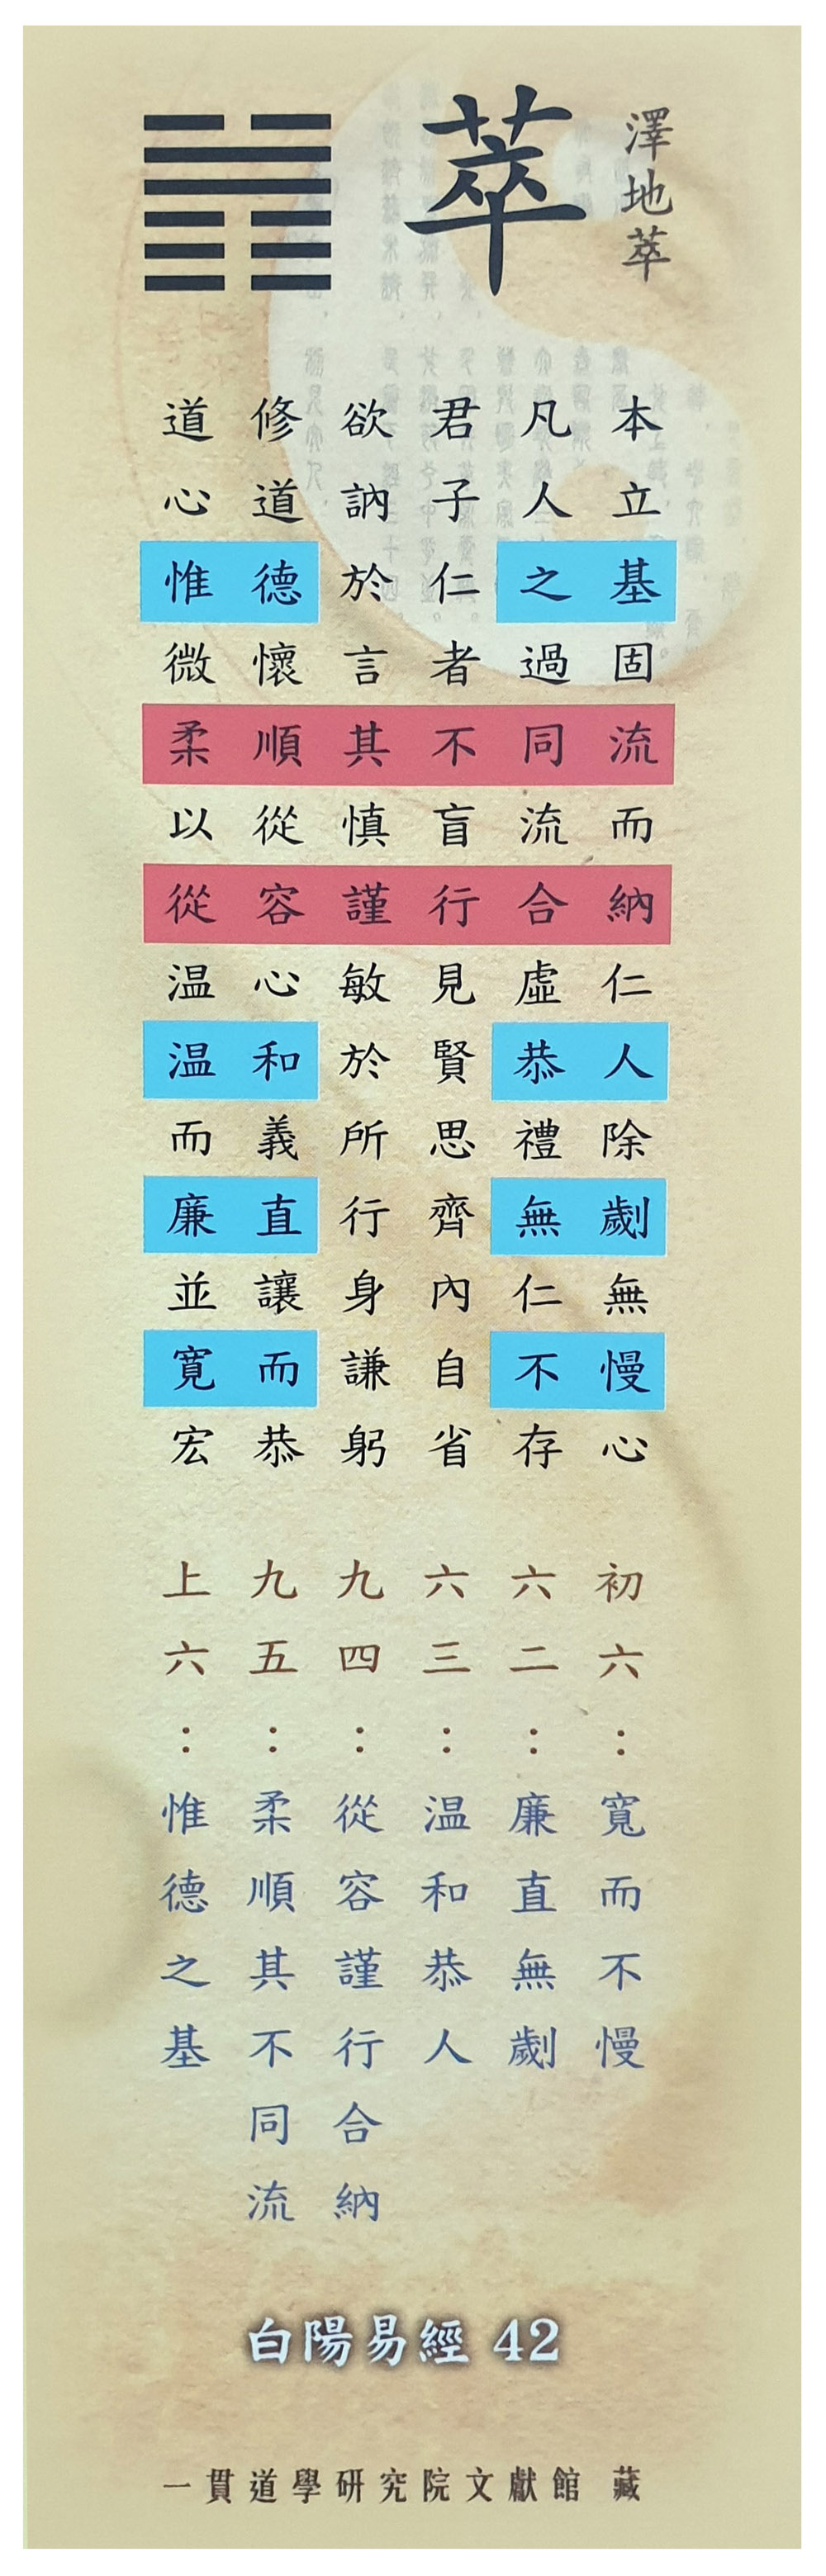 澤地萃
萃
本立基固流而納仁人除劌無慢心
凡人之過同流合虛恭禮無仁不存
君子仁者不盲行見賢思齊內自省
欲訥於言其慎謹敏於所行身謙躬
修道德懷順從容心和義直讓而恭
道心惟微柔以從温温而廉並寬宏
初六：寬而不慢
六二：廉直無劌
六三：温和恭人
九四：從容謹行合納
九五：柔順其不同流
上六：惟德之基
白陽易經 42
一貫道學研究院文獻館 藏